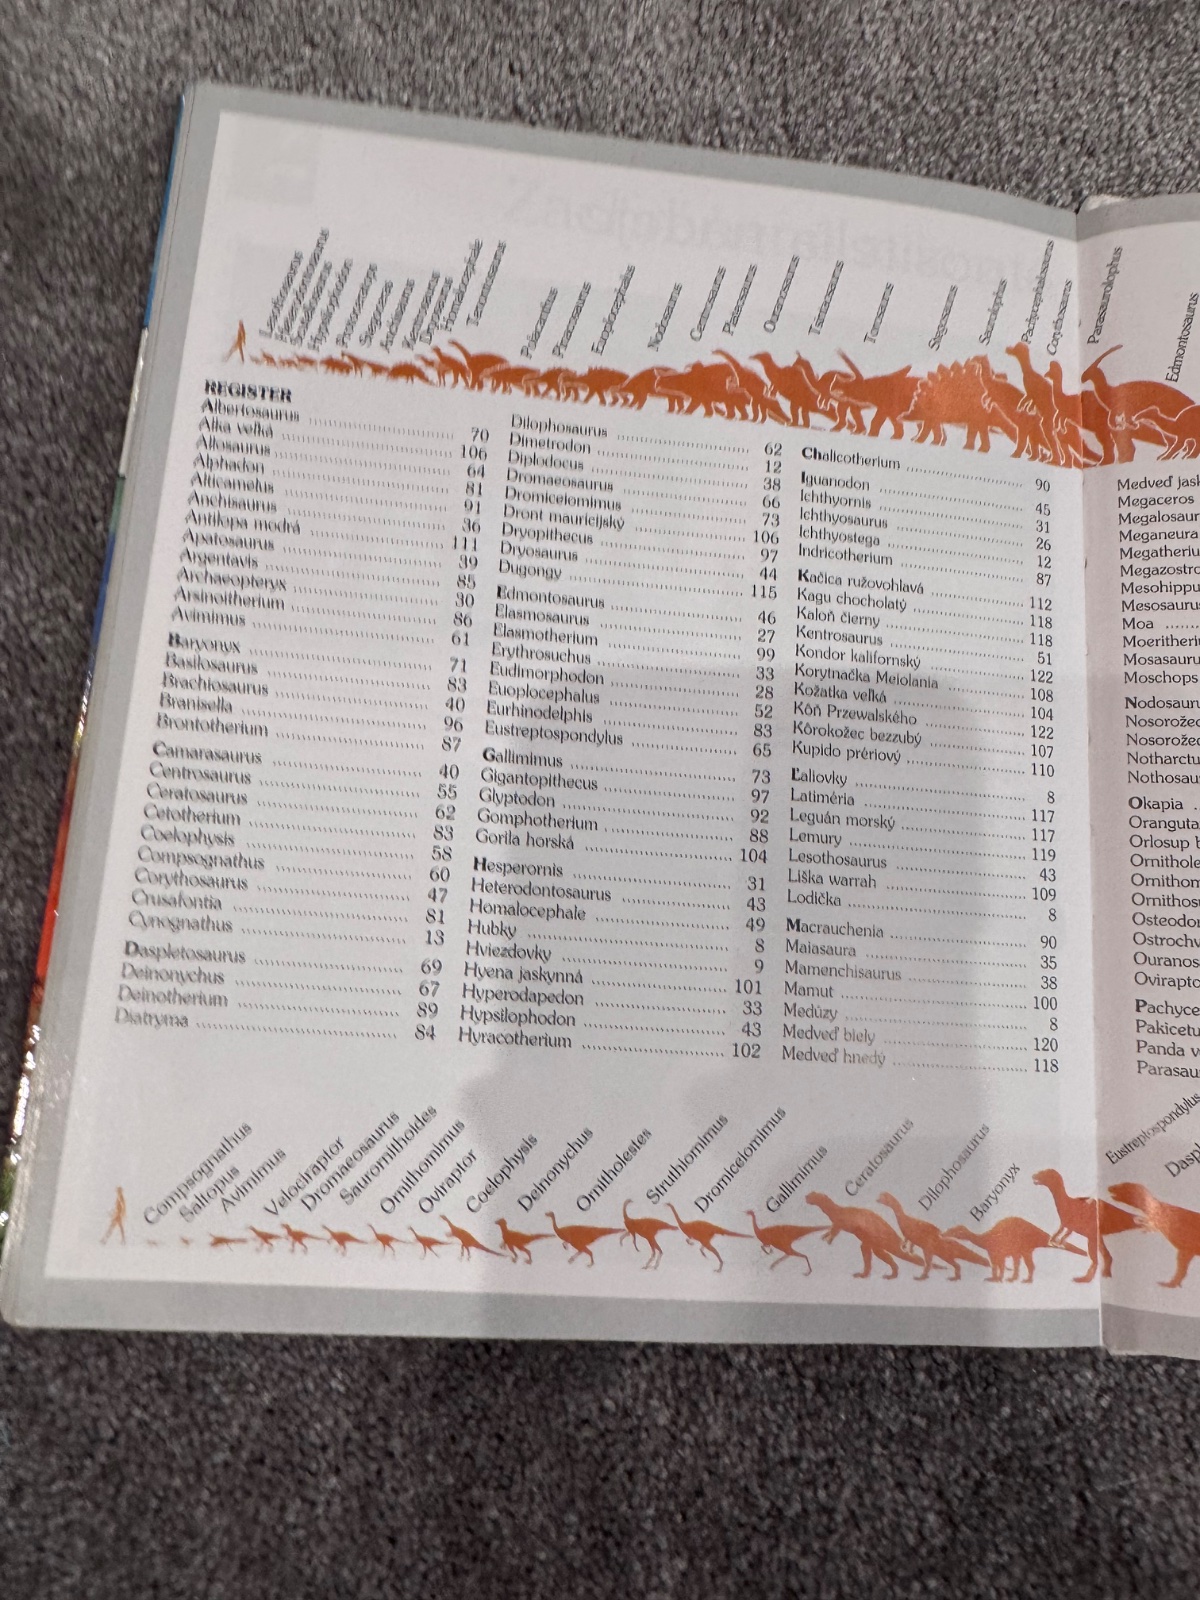 Lesothosaurus
Heterodontosaurus
Scutellosaurus
Hypsilophodon
Protoceratops
Stegoceras
Anchisaurus
Dryosaurus
Homalocephale
Tenontosaurus
Polacanthus
Pinacosaurus
Euoplocephalus
Nodosaurus
Centrosaurus
Plateosaurus
Ouranosaurus
Titanosaurus
Torosaurus
Stegosaurus
Saurolophus
Pachycephalosaurus
Corythosaurus
Parasaurolophus
Edmontosaurus
REGISTER
Albertosaurus 70
Alka veľká 106
Allosaurus 64
Alphadon 81
Alticamelus 91
Anchisaurus 36
Antilopa modrá 111
Apatosaurus 39
Argentavis 85
Archaeopteryx 30
Arsinoitherium 86
Avimimus 61
Baryonyx 71
Basilosaurus 83
Brachiosaurus 40
Branisella 96
Brontotherium 87
Camarasaurus 40
Centrosaurus 55
Ceratosaurus 62
Cetotherium 83
Coelophysis 58
Compsognathus 60
Corythosaurus 47
Crusafontia 81
Cynognathus 13
Daspletosaurus 69
Deinonychus 67
Deinotherium 89
Diatryma 84
Dilophosaurus 62
Dimetrodon 12
Diplodocus 38
Dromaeosaurus 66
Dromiceiomimus 73
Dront maurícijský 106
Dryopithecus 97
Dryosaurus 44
Dugongy 115
Edmontosaurus 46
Elasmosaurus 27
Elasmotherium 99
Erythrosuchus 33
Eudimorphodon 28
Euoplocephalus 52
Eurhinodelphis 83
Eustreptospondylus 65
Gallimimus 73
Gigantopithecus 97
Glyptodon 92
Gomphotherium 88
Gorila horská 104
Hesperornis 31
Heterodontosaurus 43
Homalocephale 49
Hubky 8
Hviezdovky 9
Hyena jaskynná 101
Hyperodapedon 33
Hypsilophodon 43
Hyracotherium 102
Chalicotherium 90
Iguanodon 45
Ichthyornis 31
Ichthyosaurus 26
Ichthyostega 12
Indricotherium 87
Kačica ružovohlavá 112
Kagu chocholatý 118
Kaloň čierny 118
Kentrosaurus 51
Kondor kalifornský 122
Korytnačka Meiolania 108
Kožatka veľká 104
Kôň Przewalského 122
Kôrokožec bezzubý 107
Kupido prériový 110
Ľaliovky 8
Latiméria 117
Leguán morský 117
Lemury 119
Lesothosaurus 43
Líška warrah 109
Lodička 8
Macrauchenia 90
Maiasaura 35
Mamenchisaurus 38
Mamut 100
Medúzy 8
Medveď biely 120
Medveď hnedý 118
Medveď jask
Megaceros
Megalosaur
Meganeura
Megatheriu
Megazostro
Mesohippu
Mesosauru
Moa
Moeritheri
Mosasauru
Moschops
Nodosauru
Nosorožec
Nosorožec
Notharctu
Nothosau
Okapia
Oranguta
Orlosup b
Ornithole
Ornithom
Ornithosu
Osteodon
Ostrochv
Ouranosa
Ovirapto
Pachyce
Pakicetu
Panda v
Parasau
Compsognathus
Saltopus
Avimimus
Velociraptor
Dromaeosaurus
Saurornithoides
Ornithomimus
Oviraptor
Coelophysis
Deinonychus
Ornitholestes
Struthiomimus
Dromiceiomimus
Gallimimus
Ceratosaurus
Dilophosaurus
Baryonyx
Eustreptospondylus
Dasp